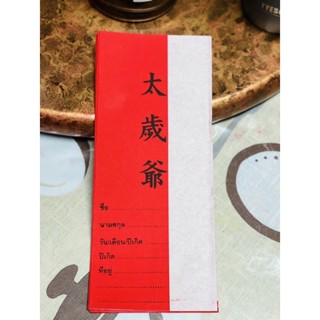 太歲爺
ชื่อ
นามสกุล
วัน/เดือน/ปีเกิด
ปีเกิด
ที่อยู่